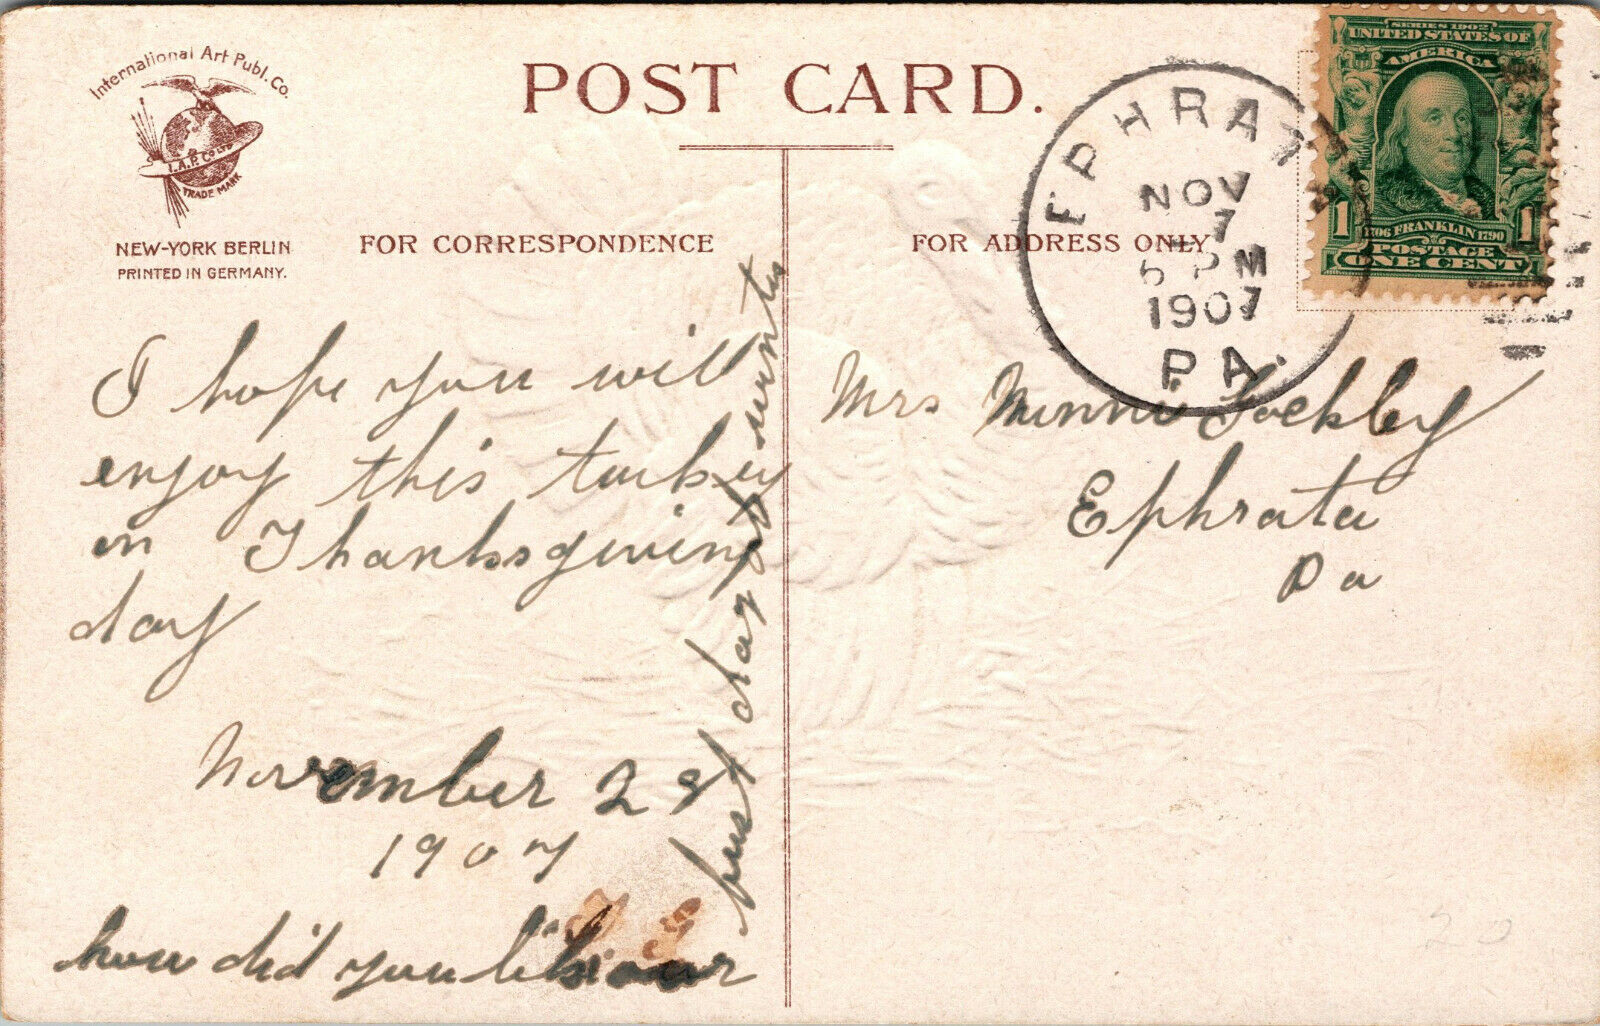 International Art Publ. Co.
I. A. P. CO LTD
TRADE MARK
NEW-YORK BERLIN
PRINTED IN GERMANY.
POST CARD.
FOR CORRESPONDENCE
FOR ADDRESS ONLY
EPHRATA
NOV
7
5 PM
1907
PA.
SERIES 1902
UNITED STATES OF
AMERICA
1 1
1706 FRANKLIN 1790
POSTAGE
ONE CENT
I hope you will
enjoy this turkey
on Thanksgiving
day
November 28
1907
how did you like our
first day at
Mrs Minni
Ephrata
Pa
20